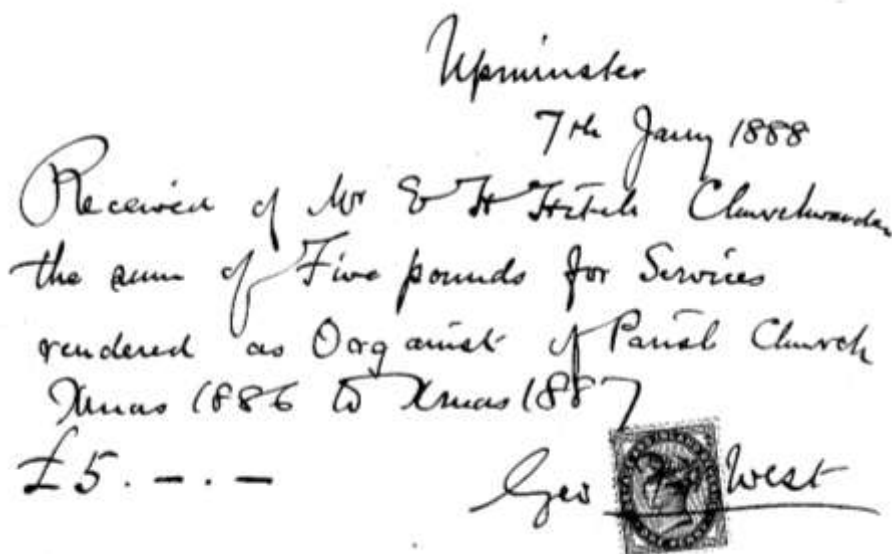 Upminster
7th Jany 1888
Received of Mr E H Churchwarden
the sum of Five pounds for Services
rendered as Organist of Parish Church
Xmas 1886 to Xmas 1887
£5 . - . -
Geo West